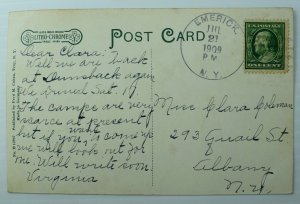 LITHO-CHROME
POST CARD
EMERICK,
JUL
21
1909
P M
N. Y.
ONE CENT
Dear Clara:
Well we are back
at Dunsback again
we arrived Sat. 17.
The camps are very
scarce at present
but if you want to come up
we will look out for
one. Will write soon
Virginia
Miss Clara Colman
293 Quail St
Albany
N.Y.